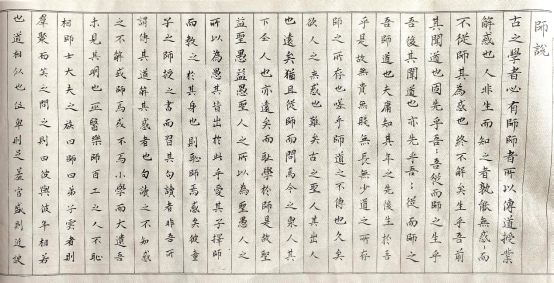 師說
古之學者必有師師者所以傳道授業
解惑也人非生而知之者孰能無惑而
不從師其為惑也終不解矣生乎吾前
其聞道也固先乎吾〻從而師之生乎
吾後其聞道也亦先乎吾〻從而師之
吾師道也夫庸知其年之先後生於吾
乎是故無貴無賤無長無少道之所存
師之所存也嗟乎師道之不傳也久矣
欲人之無惑也難矣古之聖人其出人
也遠矣猶且從師而問焉今之衆人其
下聖人也亦遠矣而恥學於師是故聖
益聖愚益愚聖人之所以為聖愚人之
所以為愚其皆出於此乎愛其子擇師
而教之於其身也則恥師焉惑矣彼童
子之師授之書而習其句讀者非吾所
謂傳其道解其惑者也句讀之不知惑
之不解或師焉或不焉小學而大遺吾
未見其明也巫醫樂師百工之人不恥
相師士大夫之族曰師曰弟子雲者則
羣聚而笑之問之則曰彼與彼年相若
也道相似也位卑則足羞官盛則近諛